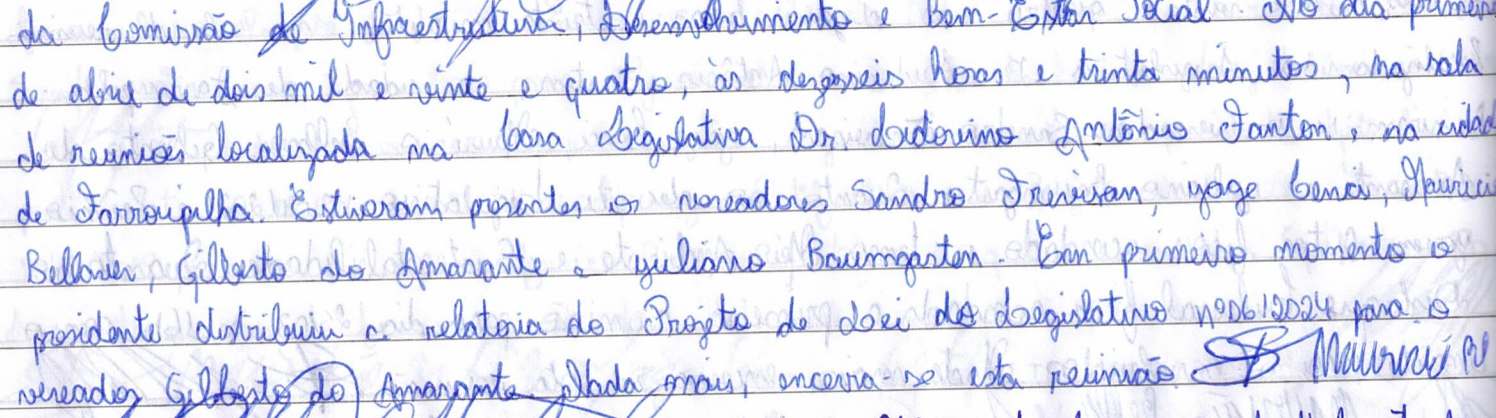 da Comissão de Infraestrutura, Desenvolvimento e Bem-Estar Social. No dia primeiro
de abril de dois mil e vinte e quatro, às dezesseis horas e trinta minutos, na sala
de reuniões localizada na Casa Legislativa Dr. Lidovino Antônio Fanton, na cidade
de Farroupilha. Estiveram presentes os vereadores Sandro Trevisan, yoge Cenci, Mauricio
Bellaver, Gilberto do Amarante e yuliano Baumgarten. Em primeiro momento o
presidente distribuiu a relatoria do Projeto de Lei do Legislativo nº 06/2024 para o
vereador Gilberto do Amarante. Nada mais, encerra-se esta reunião. Mauricio